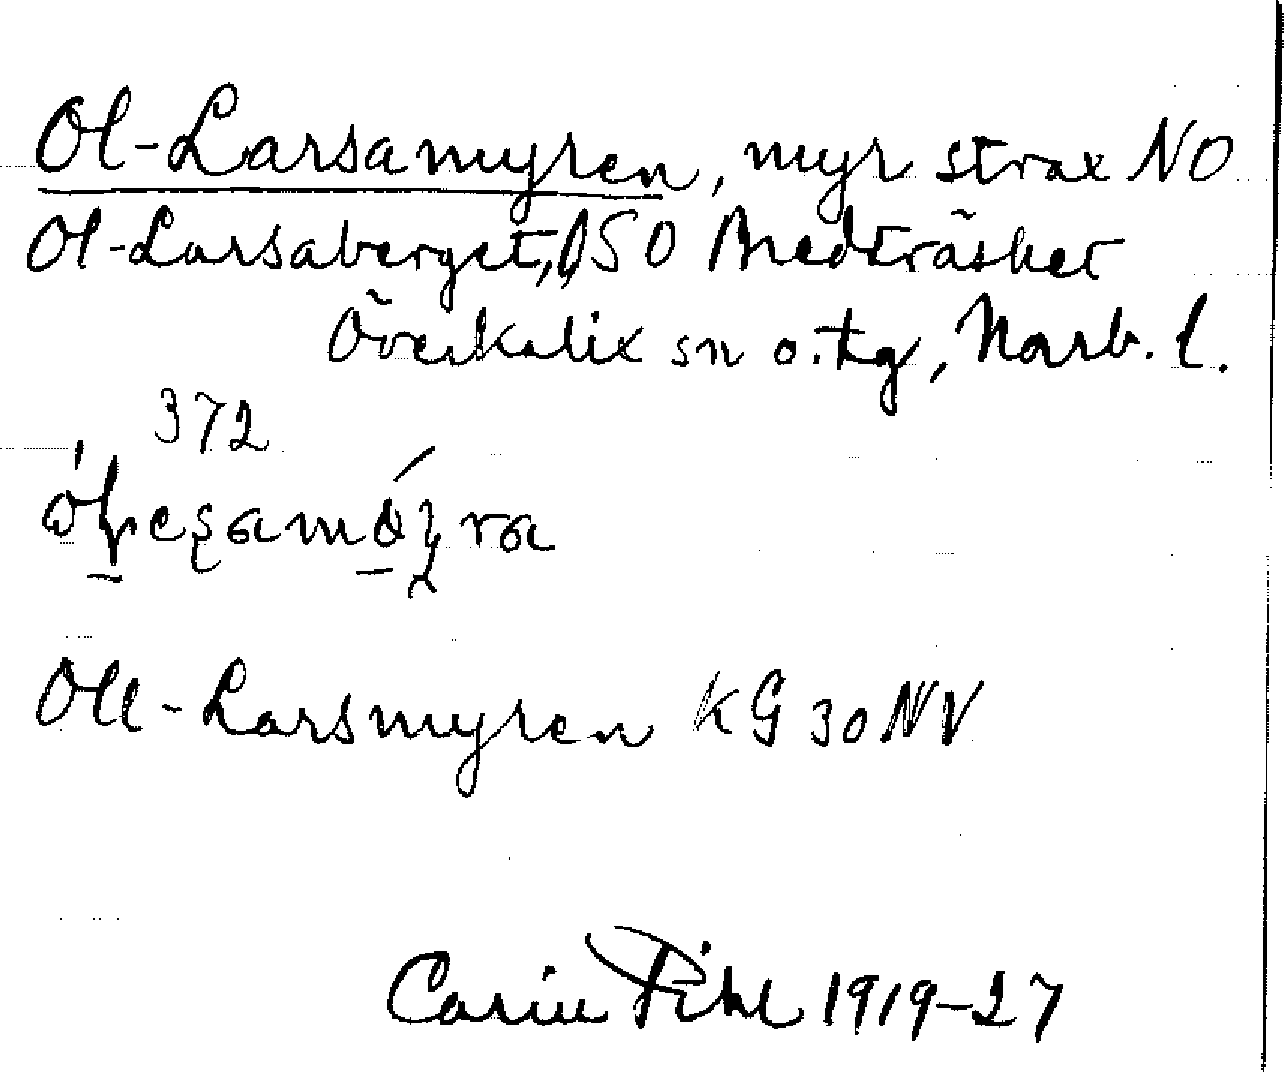 Ol-Larsamyren, myr strax NO
Ol-Larsaberget, OSO Bredträsket
Överkalix sn o. tg, Norrb. l.
372
Oll-Larsmyren KG 30 NV
Carin Pihl 1919-27